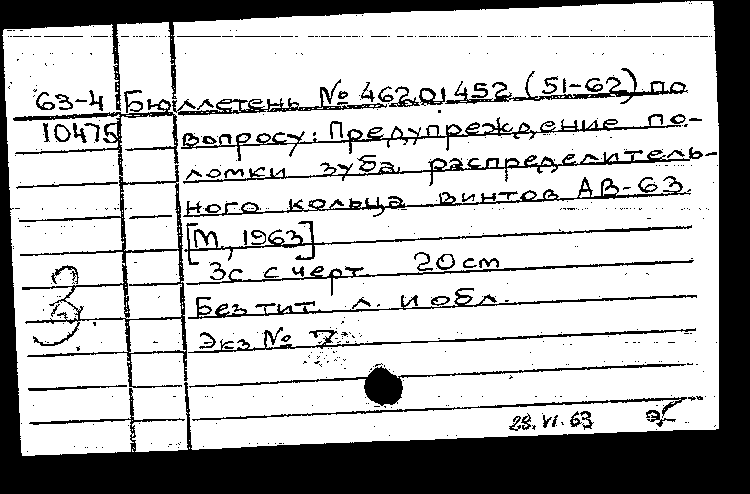 63-4 Бюллетень № 46201452 (51-62) по
10475 вопросу: Предупреждение по-
ломки зуба распределитель-
ного кольца винтов АВ-63.
[М, 1963]
3с с черт. 20 cm
Без тит. л. и обл.
Экз № 7
3
23.VI.63